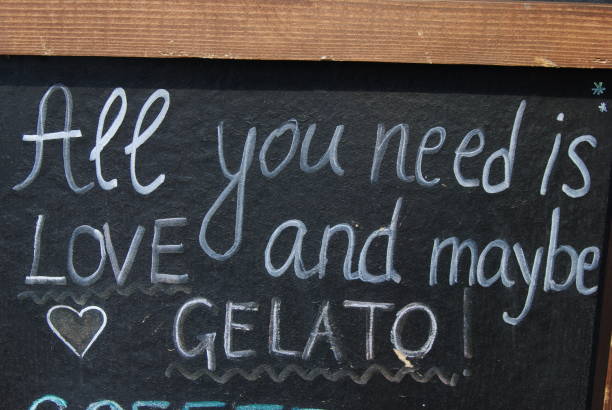 All you need is
LOVE and maybe
GELATO!